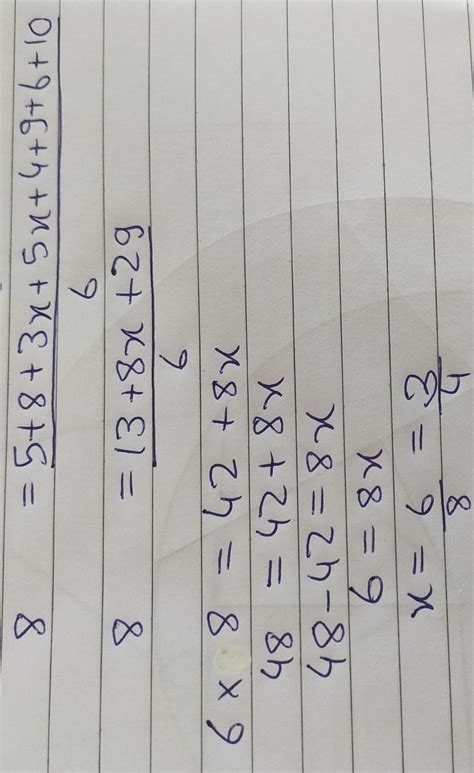 8 = 5+8+3x+5x+4+9+6+10
6
8 = 13+8x+29
6
6 × 8 = 42 + 8x
48 = 42 + 8x
48 - 42 = 8x
6 = 8x
x = 6 = 3
8 4